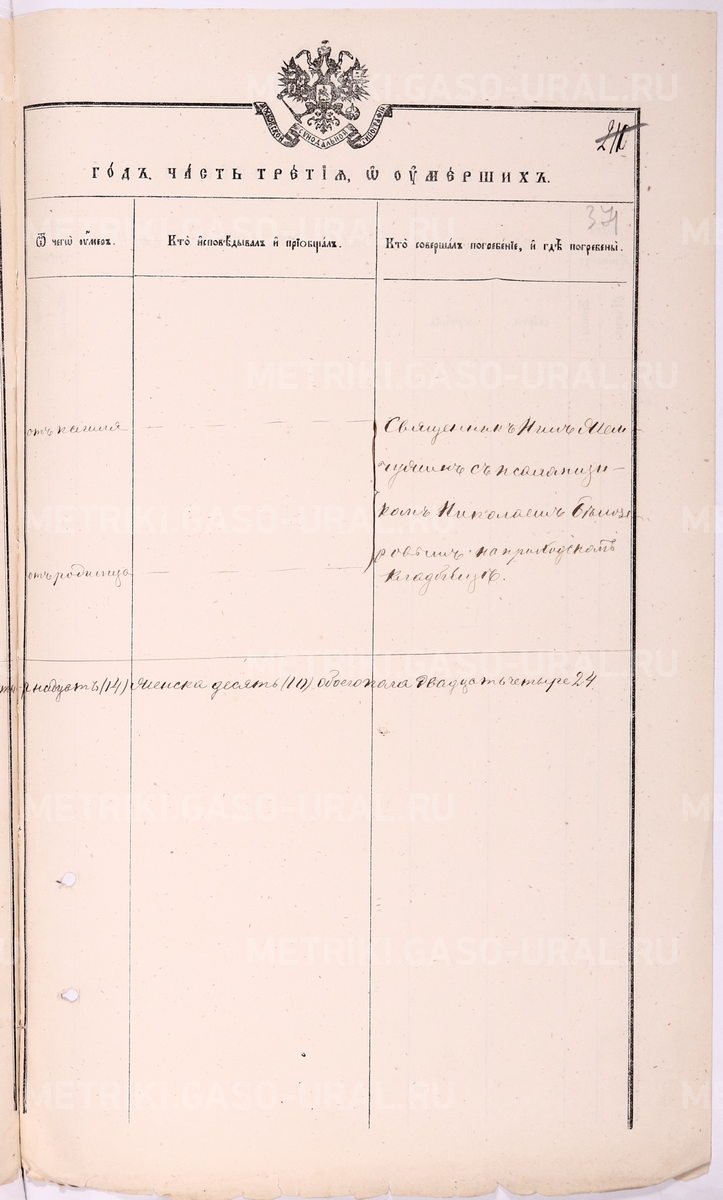 МОСКОВСКОЙ СУНОДАЛЬНОЙ ТИПОГРАФІИ
211
ГО́ДЪ, ЧА́СТЬ ТРЕ́ТІѦ, Ѡ ОУ҆МЕ́РШИХЪ.
371
Ѿ чегѡ̀ оу҆́меръ.
Кто̀ и҆сповѣ́дывалъ и҆ прїѡбща́лъ.
Кто̀ соверша́лъ погребе́нїе, и҆ гдѣ̀ погребены̀.
отъ кашля
Священникъ
съ псаломщи-
комъ Николаемъ Бѣлозе
ровымъ на приходскомъ
кладбищѣ.
отъ родимца
надцать (14) Женска десять (10) обоего пола двадцать четыре 24.
METRIKI.GASO-URAL.RU